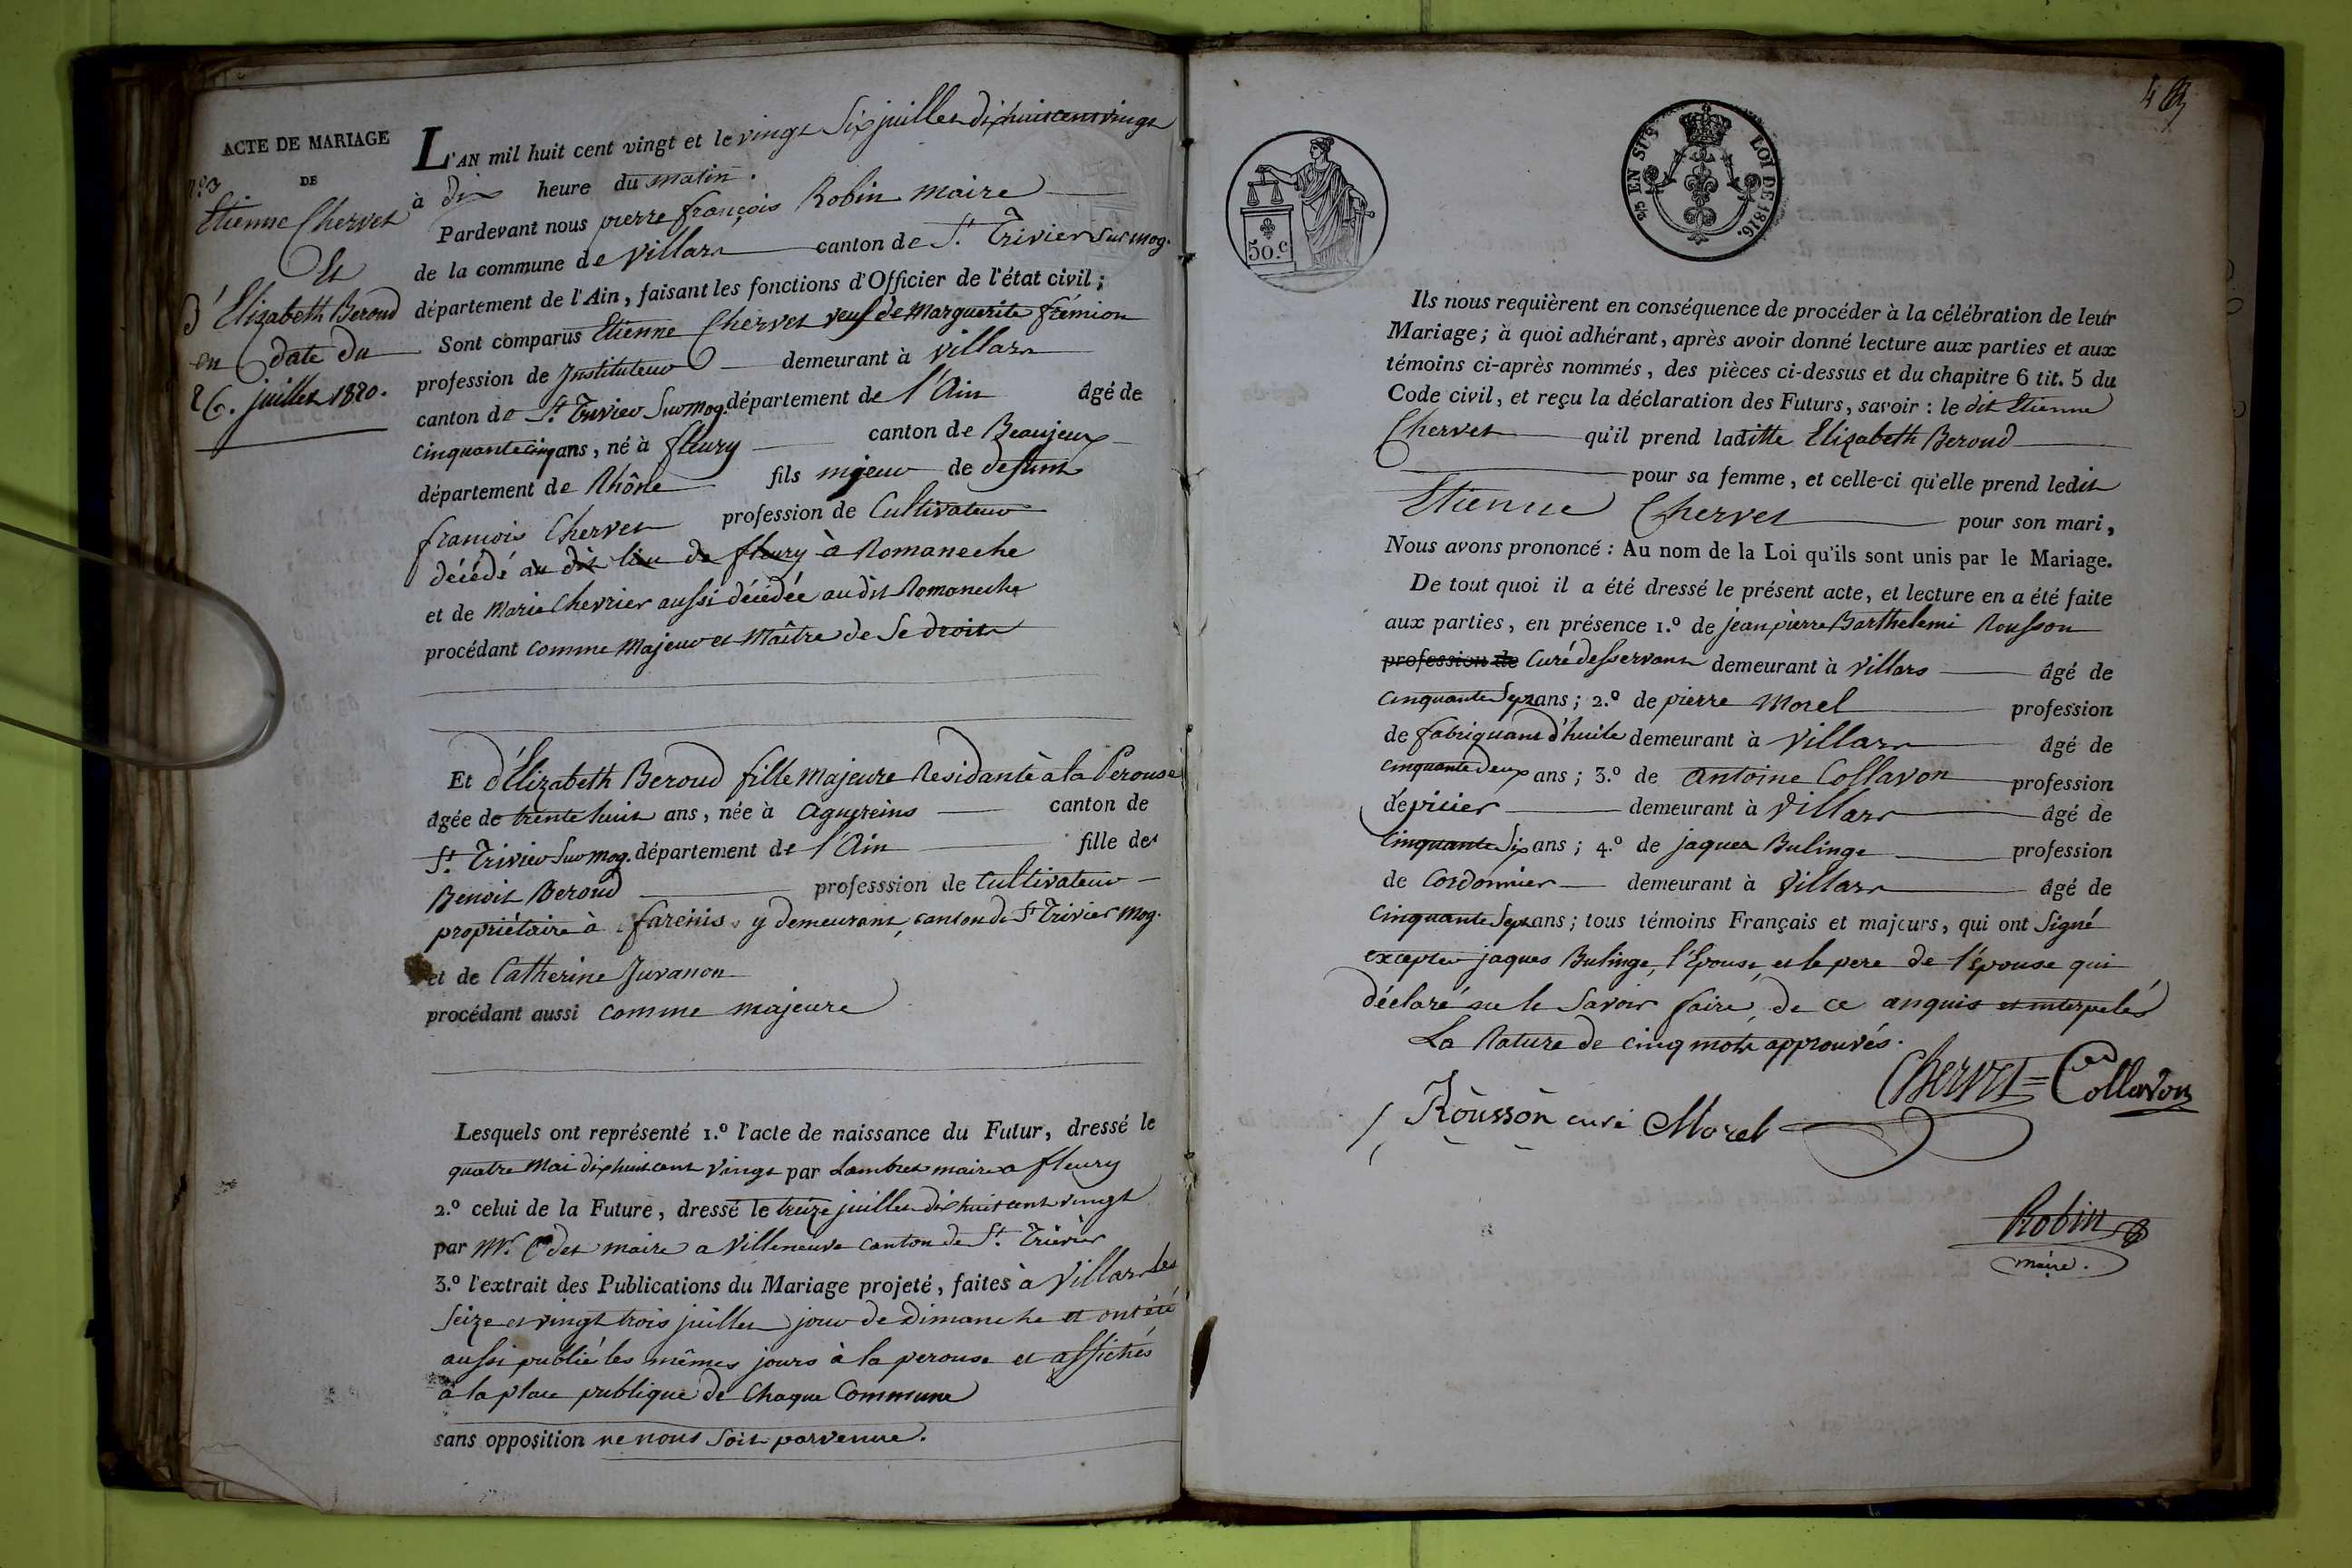 ACTE DE MARIAGE
DE
N.º 3
Etienne Chervet
Et
d'Elizabeth Beroud
en date du
26. juillet 1820.
L'AN mil huit cent vingt et le vingt six juillet dix huit cent vingt
à dix heure du matin.
Pardevant nous pierre françois Robin maire
de la commune de Villars canton de St. Trivier sur mog.
département de l'Ain, faisant les fonctions d'Officier de l'état civil;
Sont comparus Etienne Chervet veuf de Marguerite frémion
profession de Instituteur demeurant à Villars
canton de St. Trivier sur mog. département de l'Ain âgé de
cinquante cinq ans, né à fleury canton de Beaujeux
département de Rhône fils majeur de defunt
françois Chervet profession de Cultivateur
décédé au dit lieu de fleury à Romaneche
et de Marie Chevrier aussi décédée au dit Romaneche
procédant comme Majeur et Maître de se droits
Et d'Elizabeth Beroud fille majeure Residante à la Perouse
âgée de trente huit ans, née à agnereins canton de
St. Trivier sur mog. département de l'Ain fille de
Benoit Beroud professsion de Cultivateur
propriétaire à fareins y demeurant, canton de St Trivier mog.
et de Catherine Juvanon
procédant aussi comme majeure
Lesquels ont représenté 1.º l'acte de naissance du Futur, dressé le
quatre Mai dix huit cent vingt par Lambret maire a fleury
2.º celui de la Future, dressé le treize juillet dix huit cent vingt
par Mr. maire a Villeneuve canton de St. Trievier
3.º l'extrait des Publications du Mariage projeté, faites à Villars les
seize et vingt trois juillet jour de Dimanche et ont été
aussi publié les mêmes jours à la perouse et affichés
à la place publique de Chaque Commune
sans opposition ne nous soit parvenue.
50.c
25 EN SUS LOI DE 1816.
Ils nous requièrent en conséquence de procéder à la célébration de leur
Mariage; à quoi adhérant, après avoir donné lecture aux parties et aux
témoins ci-après nommés, des pièces ci-dessus et du chapitre 6 tit. 5 du
Code civil, et reçu la déclaration des Futurs, savoir: le dit Etienne
Chervet qu'il prend laditte Elizabeth Beroud
pour sa femme, et celle-ci qu'elle prend ledit
Etienne Chervet pour son mari,
Nous avons prononcé: Au nom de la Loi qu'ils sont unis par le Mariage.
De tout quoi il a été dressé le présent acte, et lecture en a été faite
aux parties, en présence 1.º de jean pierre Barthelemi Rousson
profession de Curé desservant demeurant à Villars âgé de
cinquante sept ans; 2.º de pierre Morel profession
de fabriquant d'huile demeurant à Villars âgé de
cinquante deux ans; 3.º de antoine Collavon profession
d'epicier demeurant à Villars âgé de
cinquante six ans; 4.º de jaques Bulinge profession
de Cordonnier demeurant à Villars âgé de
cinquante sept ans; tous témoins Français et majeurs, qui ont signé
excepter jaques Bulinge, l'Epouse, et le pere de l'épouse qui
déclaré ne le savoir faire, de ce anquis et interpelés
La Rature de cinq mots approuvés.
Chervet Collavon
Rousson curé Morel
Robin
maire.